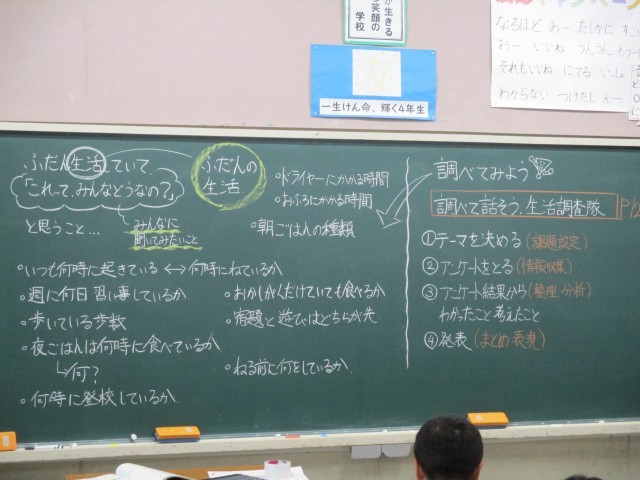 が生きる
笑顔の
学校
一生けん命、輝く4年生
なるほど あー たしかに すごい
おー いいね うんうん もう一
それもいいね にてる
わからない つけたし
ふだん生活していて、
「これって、みんなどうなの?」
と思うこと…
みんなに
聞いてみたいこと
ふだんの
生活
・ドライヤーにかかる時間
・おふろにかかる時間
・朝ごはんの種類
・いつも何時に起きている ↔ 何時にねているか
・週に何日 習い事しているか
・歩いている歩数
・夜ごはんは何時に食べているか
↳何?
・何時に登校しているか
・宿題と遊びはどちらが先
・ねる前に何をしているか
調べてみよう
調べて話そう、生活調査隊
①テーマを決める(課題設定)
②アンケートをとる(情報収集)
③アンケート結果から(整理・分析)
わかったこと考えたこと
④発表(まとめ・表現)